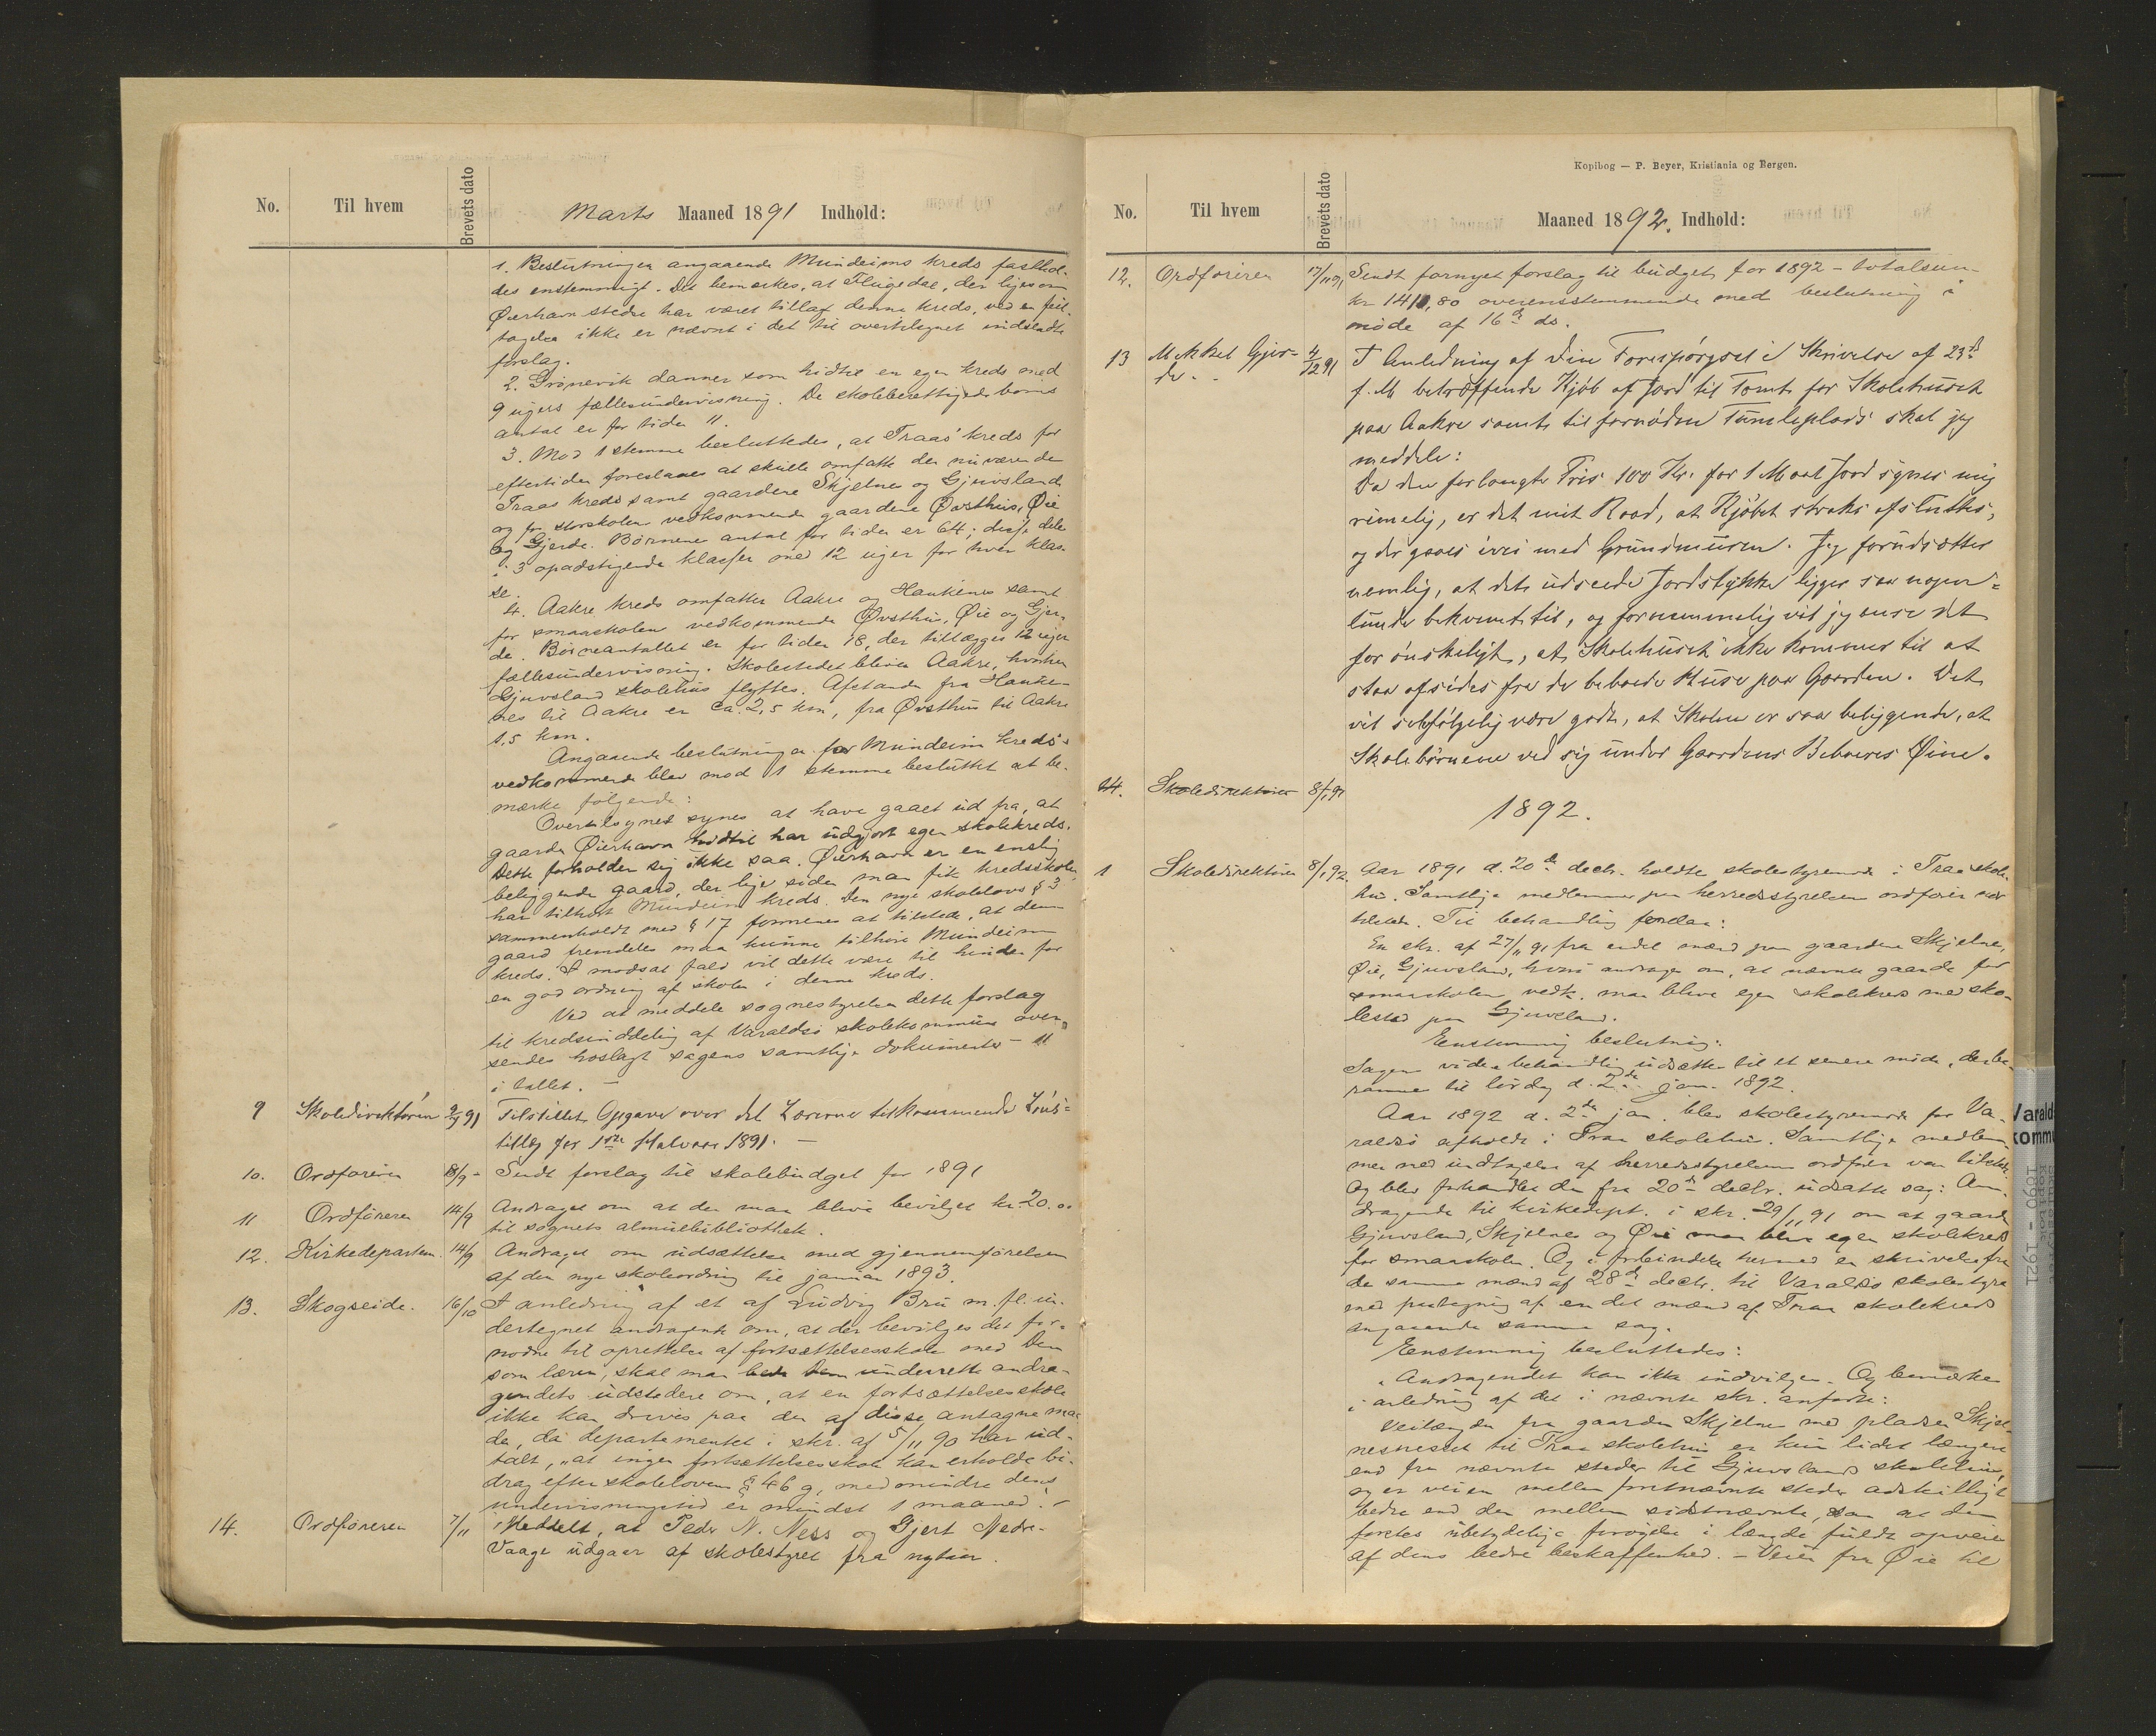 No. Til hvem Brevets dato Marts Maaned 1891 Indhold:
1. Beslutningen angaaende Mundeims kreds fasthol-
des enstemmigt. Det bemærkes, at Flugedal, der ligesom
Øierhavn stedse har været tillagt denne kreds, ved en feil-
tagelse ikke er nævnt i det til overtilsynet indsendte
forslag.
2. Grønevik danner som hidtil en egen kreds med
9 ugers fællesundervisning. De skoleberettigede børns
antal er for tiden 11.
3. Mod 1 stemme besluttedes, at Traas kreds for
eftertiden foreslaaes at skulle omfatte den nuværende
Traas kreds samt gaardene Skjelnes og Gjuvsland
og for storskolens vedkommende gaardene Øvsthus, Øie
og Gjerde. Børnenes antal for tiden er 64; disse deles
i 3 opadstigende klasser med 12 uger for hver klas-
se.
4. Aakre kreds omfatter Aakre og Haukenes samt
for smaaskolens vedkommende Øvsthus, Øie og Gjer-
de. Børneantallet er for tiden 18, der tillægges 12 uger
fællesundervisning. Skolestedet bliver Aakre, hvorhen
Gjuvsland skolehus flyttes. Afstanden fra Hauke-
nes til Aakre er ca. 2,5 km, fra Øvsthus til Aakre
1,5 km.
Angaaende beslutningen for Mundeim kreds's
vedkommende blev mod 1 stemme besluttet at be-
mærke følgende:
Overtilsynet synes at have gaaet ud fra, at
gaarden Øierhavn hidtil har udgjort egen skolekreds.
Dette forholder sig ikke saa. Øierhavn er en enslig
beliggende gaard, der lige siden man fik kredsskoler
har tilhørt Mundeim kreds. Den nye skolelovs § 3
sammenholdt med § 17 formenes at tilstede, at denne
gaard fremdeles maa kunne tilhøre Mundeim
kreds. I modsat fald vil dette være til hinder for
en god ordning af skolen i denne kreds.
Ved at meddele sognestyrelsen dette forslag
til kredsinddeling af Varaldsø skolekommune over-
sendes hoslagt sagens samtlige dokumenter – 11
i tallet. –
9 Skoledirektøren 2/9 91 Tilstillet Opgave over det Lærerne tilkommende Løns-
tillæg for 1ste Halvaar 1891. –
10. Ordføreren 18/9 – Sendt forslag til skolebudget for 1891
11 Ordføreren 14/9 Andraget om at der maa blive bevilget kr. 20.00
til sognets almuebibliothek.
12. Kirkedepartem. 14/9 Andraget om udsættelse med gjennemførelsen
af den nye skoleordning til januar 1893.
13. Skogseide. 16/10 I anledning af et af Ludvig Bru m. fl. un-
dertegnet andragende om, at der bevilges det for-
nødne til oprettelse af fortsættelsesskole med Dem
som lærer, skal man bede Dem underrette andra-
gendets udstedere om, at en fortsættelsesskole
ikke kan drives paa den af disse antagne maa-
de, da departementet i skr. af 5/11 90 har ud-
talt, "at ingen fortsættelsesskole kan erholde bi-
drag efter skolelovens § 46 g, medmindre dens
undervisningstid er mindst 1 maaned."
14. Ordføreren 7/11 Meddelt, at Peder N. Ness og Gjert Nedre-
Vaage udgaar af skolestyret fra nytaar.
Kopibog — P. Beyer, Kristiania og Bergen.
No. Til hvem Brevets dato Maaned 1892. Indhold:
12. Ordføreren 17/11 91 Sendt fornyet forslag til budget for 1892 – totalsum
kr 1410,80 overensstemmende med beslutning i
møde af 16de ds.
13 Mikkel Gjer- 4/12 91 I Anledning af Din Forespørgsel i Skrivelse af 23de
de. f. M. betræffende Kjøb af Jord til Tomt for Skolehuset
paa Aakre samt til fornøden Tumleplads skal jeg
meddele:
Da den forlangte Pris 100 Kr. for 1 Maal Jord synes mig
rimelig, er det mit Raad, at Kjøbet straks afsluttes,
og der gaaes ivei med Grundmuren. Jeg forudsætter
nemlig, at det udseede Jordstykke ligger saa nogen-
lunde bekvemt til, og fornemmelig vil jeg anse det
for ønskeligt, at Skolehuset ikke kommer til at
staa afsides fra de beboede Huse paa Gaarden. Det
vil selvfølgelig være godt, at Skolen er saa beliggende, at
Skolebørnene ved sig under Gaardens Beboeres Øine.
14. Skoledirektøren 8/1 91
1892.
1 Skoledirektøren 8/1 92. Aar 1891 d. 20de decbr. holdtes skolestyremøde i Traa skole-
hus. Samtlige medlemmer paa herredsstyrelsens ordfører nær
tilstede. Til behandling forelaa:
En skr. af 27/11 91 fra endel mænd paa gaardene Skjelnes,
Øie, Gjuvsland, hvori andrages om, at nævnte gaarde for
smaaskolens vedk. maa blive egen skolekreds med sko-
lested paa Gjuvsland.
Enstemmig beslutning:
Sagens videre behandling udsættes til et senere møde, der be-
rammes til lørdag d. 2den jan. 1892.
Aar 1892 d. 2den jan. blev skolestyremøde for Va-
raldsø afholdt i Traa skolehus. Samtlige medlem-
mer med undtagelse af herredsstyrelsens ordfører var tilstede.
Og blev forhandlet den fra 20de decbr. udsatte sag: An-
dragende til kirkedept. i skr. 29/11 91 om at gaardene
Gjuvsland, Skjelnes og Øie maa blive egen skolekreds
for smaaskolen. Og i forbindelse hermed en skrivelse fra
de samme mænd af 28de decbr. til Varaldsø skolestyre
med paategning af en del mænd af Traa skolekreds
angaaende samme sag.
Enstemmig besluttedes:
"Andragendet kan ikke indvilges. Og bemærkes
i anledning af det i nævnte skr. anførte:
Veilængden fra gaarden Skjelnes med pladsen Skjel-
nesnesset til Traa skolehus er kun lidet længere
end fra nævnte steder til Gjuvslands skolehus,
og er veien mellem førstnævnte steder adskilligt
bedre end den mellem sidstnævnte, saa at den
førstes ubetydelige forøgelse i længde fuldt opveies
af dens bedre beskaffenhed. – Veien fra Øie til
Varalds
kommu
1890 - 1921